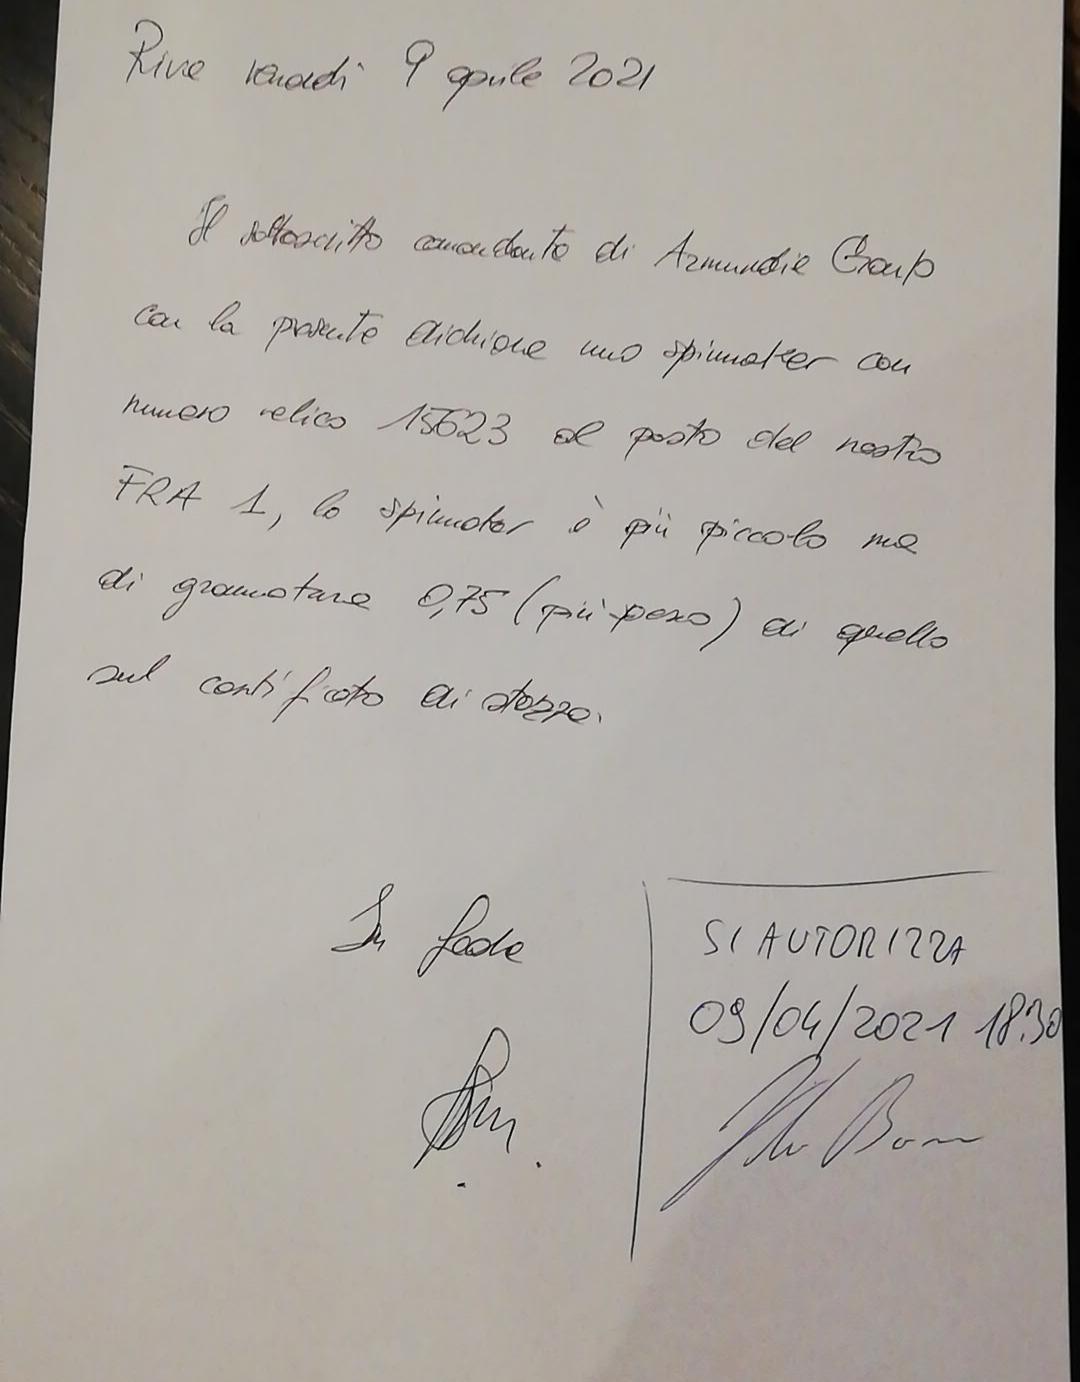 Riva venerdì 9 aprile 2021
Il sottoscritto comandante di Armundia Group
con la presente dichiara uno spinnaker con
numero velico 15623 al posto del nostro
FRA 1, lo spinnaker è più piccolo ma
di grammatura 0,75 (più peso) di quello
sul certificato di stazza.
In fede
SI AUTORIZZA
09/04/2021 18:30